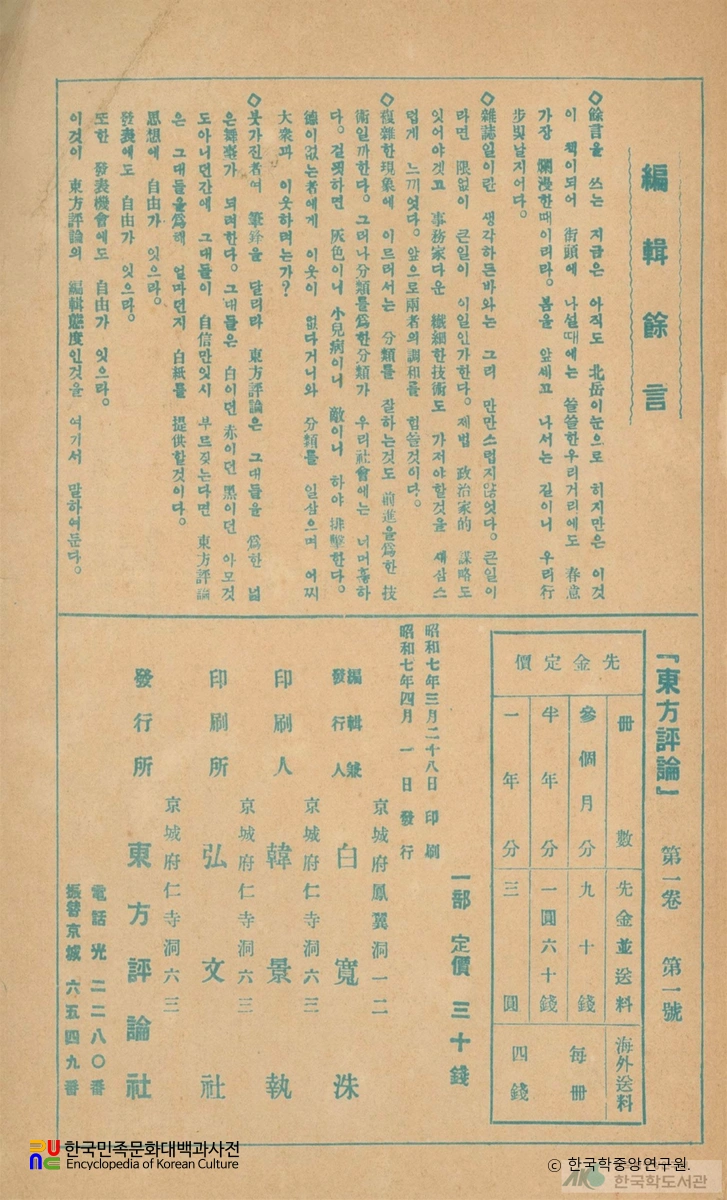 編輯餘言
◇餘言을 쓰는 지금은 아직도 北岳이눈으로 히지만은 이것
이 책이되어 街頭에 나설때에는 쓸쓸한우리거리에도 春意
가장 爛漫한때이리라。봄을 앞세고 나서는 길이니 우리行
步빛날지어다。
◇雜誌일이란 생각하든바와는 그리 만만스럽지않엇다。큰일이
라면 限없이 큰일이 이일인가한다。제법 政治家的 謀略도
잇어야겟고 事務家다운 纎細한技術도 가저야할것을 새삼스
럽게 느끼엇다。앞으로兩者의調和를 힘쓸것이다。
◇複雜한現象에 이르러서는 分類를 잘하는것도 前進을爲한 技
術일까한다。그러나分類를爲한分類가 우리社會에는 너머흉하
다。걸핏하면 灰色이니 小兒病이니 敵이니 하야 排擊한다。
德이없는者에게 이웃이 없다거니와 分類를 일삼으며 어찌
大衆과 이웃하려는가?
◇붓가진者여 筆鋒을 달리라 東方評論은 그대들을 爲한 넓
은舞臺가 되려한다。그대들은 白이던 赤이던 黑이던 아모것
도아니던간에 그대들이 自信만잇시 부르짖는다면 東方評論
은 그대들을爲해 얼마던지 白紙를 提供할것이다。
思想에 自由가 잇으라。
發表에도 自由가 잇으라。
또한 發表機會에도 自由가 잇으라。
이것이 東方評論의 編輯態度인것을 여기서 말하여둔다。
『東方評論』 第一卷 第一號
先金定價
冊數 先金並送料 海外送料
參個月分 九十錢 每冊
半年分 一圓六十錢 四錢
一年分 三圓
一部 定價 三十錢
昭和七年三月二十八日 印刷
昭和七年四月 一日 發行
京城府鳳翼洞一二
編輯兼發行人 白寬洙
京城府仁寺洞六三
印刷人 韓景執
京城府仁寺洞六三
印刷所 弘文社
京城府仁寺洞六三
發行所 東方評論社
電話光 二二八〇番
振替京城 六五四九番
한국민족문화대백과사전
Encyclopedia of Korean Culture
ⓒ 한국학중앙연구원.
한국학도서관